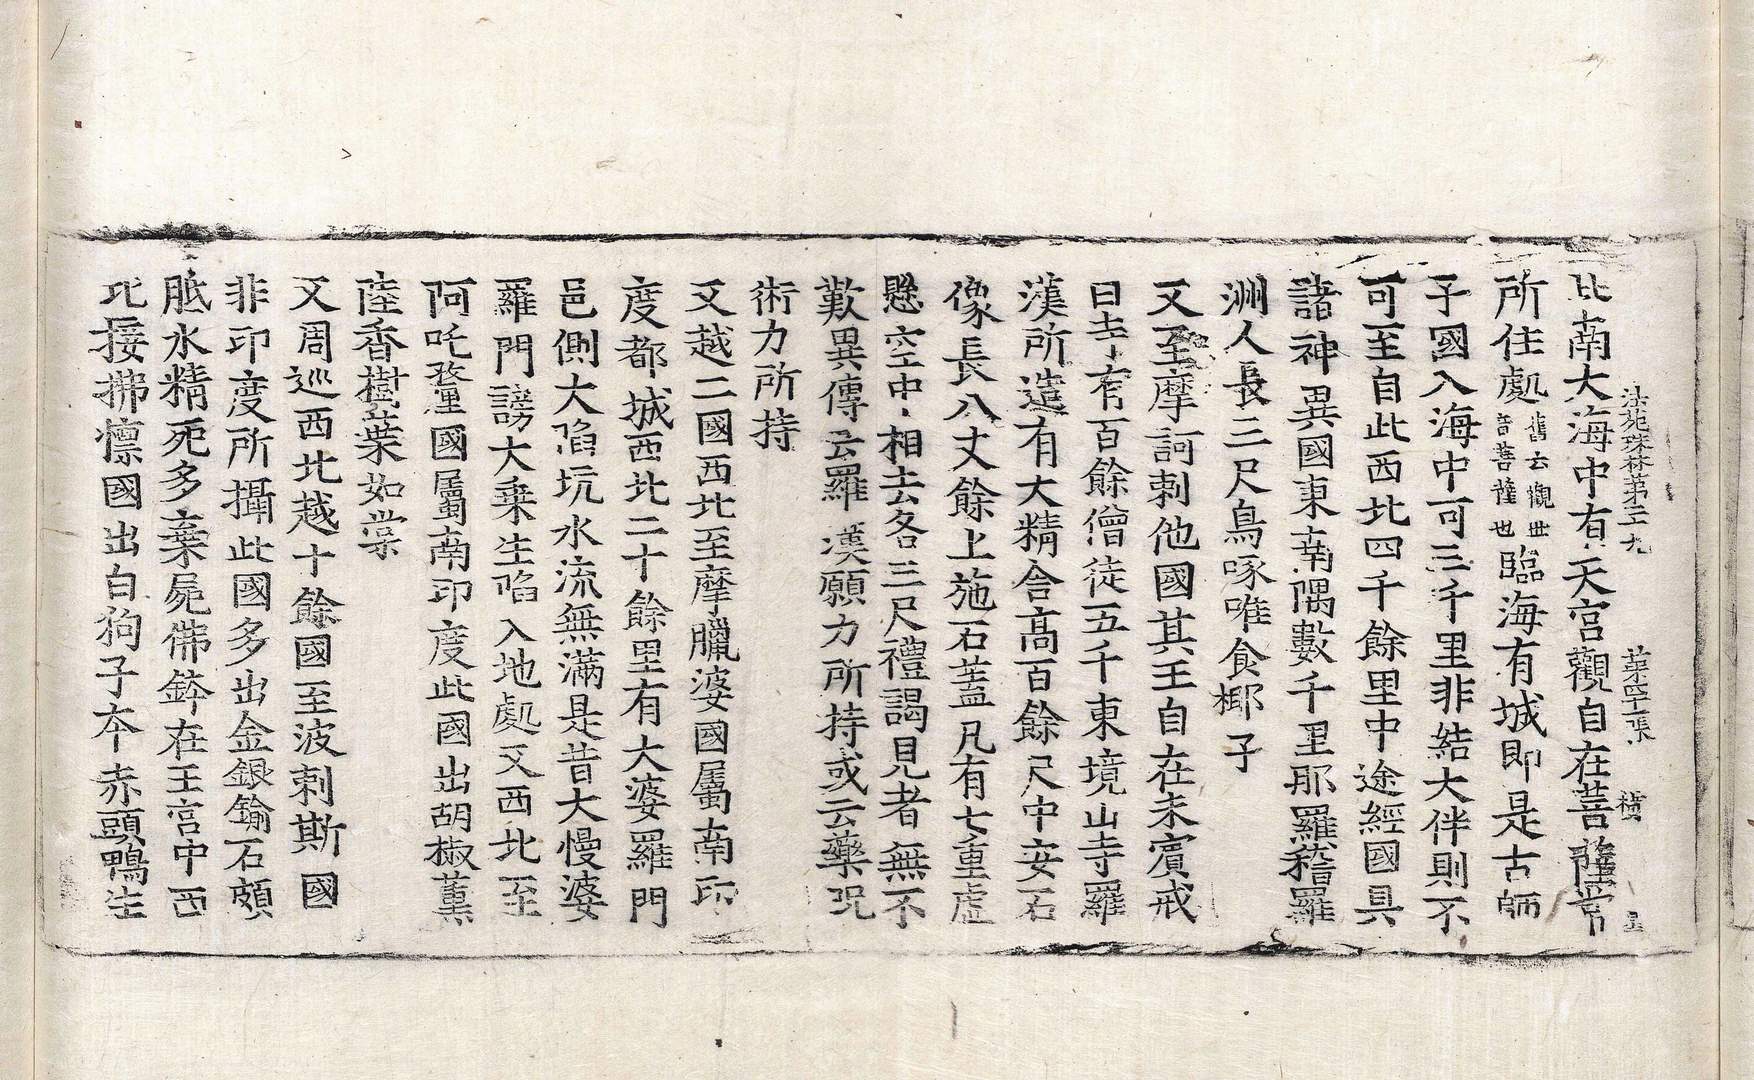 法苑珠林第二十九 第四十一張 橫
此南大海中有天宮觀自在菩薩常
所住處舊云觀世音菩薩也臨海有城即是古師
子國入海中可三千里非結大伴則不
可至自此西北四千餘里中途經國具
諸神異國東南隅數千里那羅稽羅
洲人長三尺鳥啄唯食椰子
又至摩訶剌他國其王自在未賓戒
日寺有百餘僧徒五千東境山寺羅
漢所造有大精舍高百餘尺中安石
像長八丈餘上施石蓋凡有七重虛
懸空中相去各三尺禮謁見者無不
歎異傳云羅漢願力所持或云藥呪
術力所持
又越二國西北至摩臘婆國屬南印
度都城西北二十餘里有大婆羅門
邑側大陷坑水流無滿是昔大慢婆
羅門謗大乗生陷入地處又西北至
阿吒𨤲國屬南印度此國出胡椒薰
陸香樹葉如棠
又周巡西北越十餘國至波剌斯國
非印度所攝此國多出金銀鍮石頗
胝水精死多棄屍佛鉢在王宮中西
北接拂懍國出白狗子本赤頭鴨生